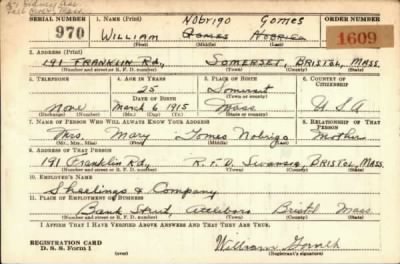 SERIAL NUMBER
970
1. NAME (Print)
Nobrigo Gomes
WILLIAM GOMES NOBRIGA
(First) (Middle) (Last)
ORDER NUMBER
1609
2. ADDRESS (Print)
191 FRANKLIN RD, SOMERSET, BRISTOL, MASS.
(Number and street or R. F. D. number) (Town) (County) (State)
3. TELEPHONE
None
4. AGE IN YEARS
25
DATE OF BIRTH
March 6 1915
(Mo.) (Day) (Yr.)
5. PLACE OF BIRTH
Somerset
(Town or county)
Mass
(State or country)
6. COUNTRY OF CITIZENSHIP
U S A
7. NAME OF PERSON WHO WILL ALWAYS KNOW YOUR ADDRESS
Mrs. Mary Gomes Nobrigo
(Mr., Mrs., Miss) (First) (Middle) (Last)
8. RELATIONSHIP OF THAT PERSON
Mother
9. ADDRESS OF THAT PERSON
191 Franklin Rd, R.F.D. Swansea, BRISTOL, MASS.
(Number and street or R. F. D. number) (Town) (County) (State)
10. EMPLOYER'S NAME
& Company
11. PLACE OF EMPLOYMENT OR BUSINESS
Bank Street, Attleboro Bristol Mass
(Number and street or R. F. D. number) (Town) (County) (State)
I AFFIRM THAT I HAVE VERIFIED ABOVE ANSWERS AND THAT THEY ARE TRUE.
REGISTRATION CARD
D. S. S. Form 1
(over)
William
(Registrant's signature)